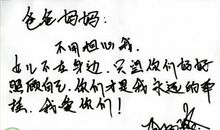 爸爸妈妈:
不用担心我。
女儿不在身边,只望你们好好
照顾自己,你们才是我永远的牵
挂,我爱你们!